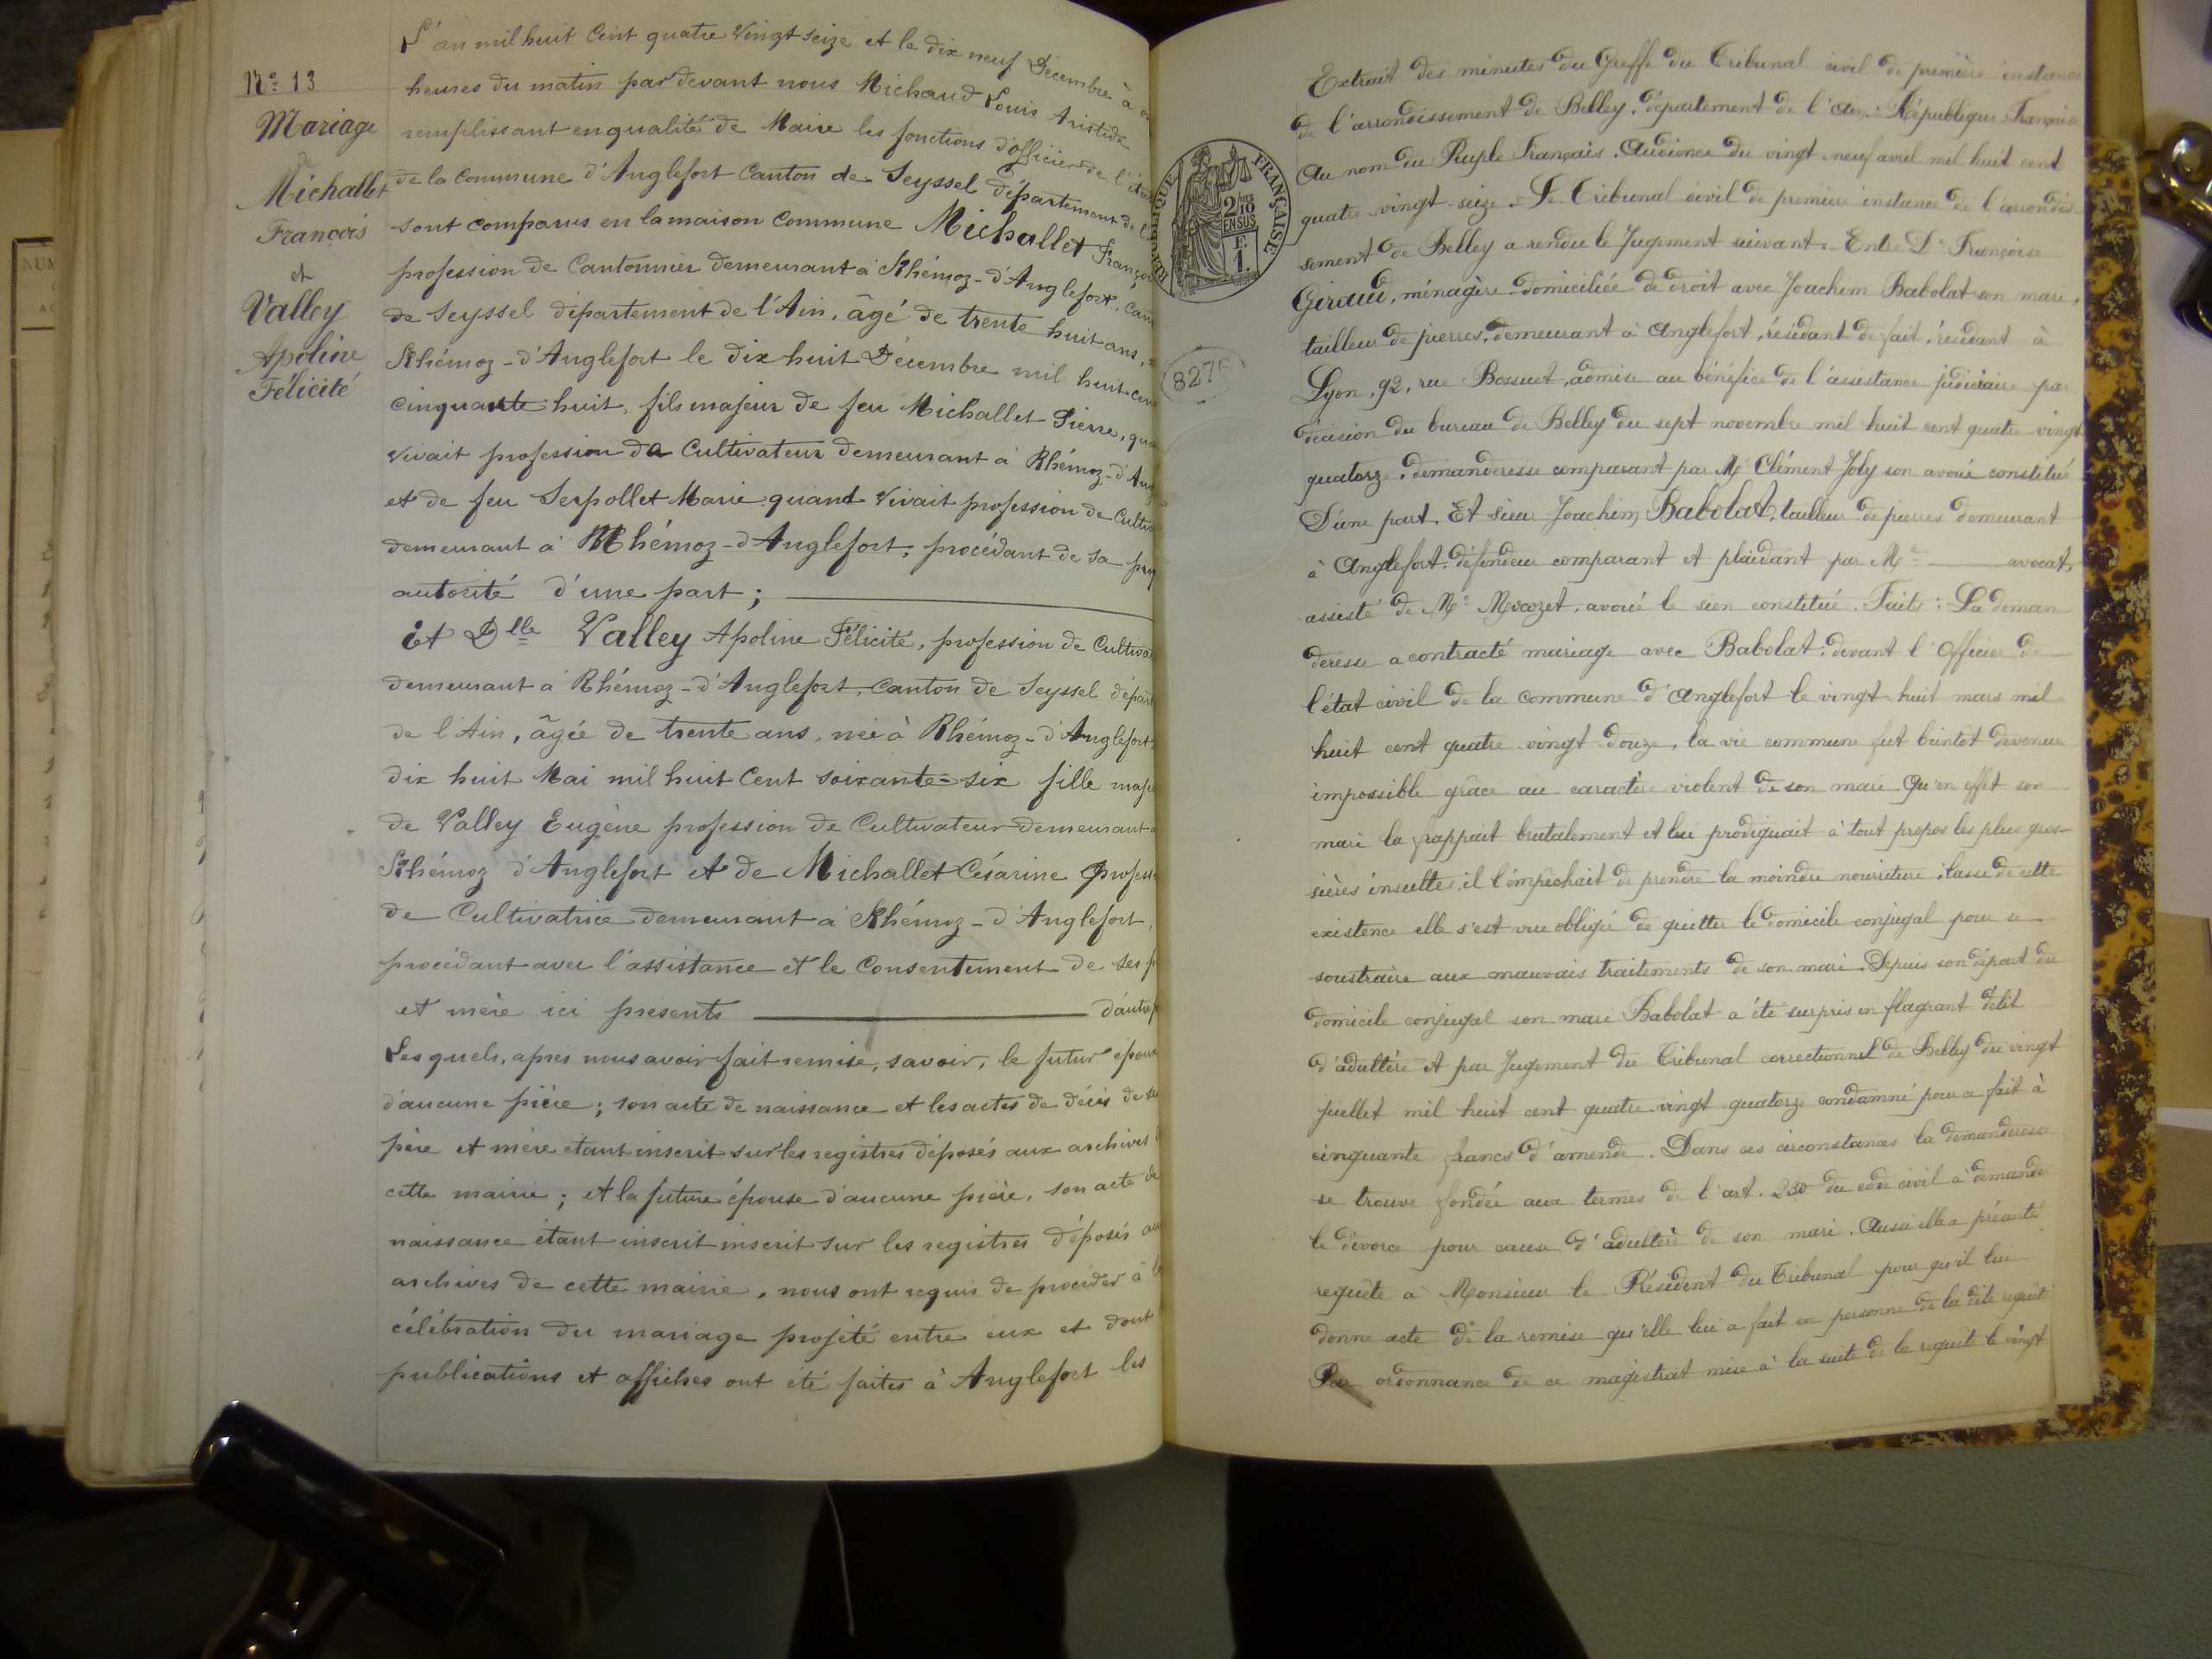 Nº 13
Mariage
de
Michallet
François
et
Valley
Apoline
Félicité
L'an mil huit Cent quatre Vingt seize et le dix neuf Décembre à
heures du matin par devant nous Michaud Louis Aristide
remplissant en qualité de Maire les fonctions d'officier de l'état
de la Commune d'Anglefort Canton de Seyssel département de l'
sont comparus en la maison Commune Michallet Franço
profession de Cantonnier demeurant à Rhémoz-d'Anglefort, Can
de Seyssel département de l'Ain, âgé de trente huit ans,
Rhémoz-d'Anglefort le dix huit Décembre mil huit cen
cinquante huit, fils majeur de feu Michallet Pierre, qu
vivait profession de Cultivateur demeurant à Rhémoz-d'Ang
et de feu Serpollet Marie quand vivait profession de Cultiv
demeurant à Rhémoz-d'Anglefort, procédant de sa pro
autorité d'une part ;
Et Dlle Valley Apoline Félicité, profession de Cultiva
demeurant à Rhémoz-d'Anglefort, canton de Seyssel dépar
de l'Ain, âgée de trente ans, née à Rhémoz-d'Anglefort
dix huit Mai mil huit Cent soixante-six fille maj
de Valley Eugène profession de Cultivateur demeurant
Rhémoz d'Anglefort et de Michallet Césarine profess
de Cultivatrice demeurant à Rhémoz-d'Anglefort,
procédant avec l'assistance et le Consentement de ses p
et mère ici présents d'autre p
Lesquels, après nous avoir fait remise, savoir, le futur époux
d'aucune pièce ; son acte de naissance et les actes de décès de se
père et mère étant inscrit sur les registres déposés aux archives
cette mairie ; et la future épouse d'aucune pièce, son acte de
naissance étant inscrit inscrit sur les registres déposés au
archives de cette mairie, nous ont requis de procéder à l
célébration du mariage projeté entre eux et dont
publications et affiches ont été faites à Anglefort les
RÉPUBLIQUE FRANÇAISE
2/10
EN SUS
F.
1.
827
Extrait des minutes du Greffe du Tribunal civil de première instance
de l'arrondissement de Belley, département de l'Ain. République Française
Au nom du Peuple Français. Audience du vingt neuf avril mil huit cent
quatre vingt seize. Le Tribunal civil de première instance de l'arrondis-
sement de Belley a rendu le Jugement suivant. Entre De Françoise
Giraud, ménagère domiciliée de droit avec Joachim Babolat son mari,
tailleur de pierres, demeurant à Anglefort, résidant de fait, résidant à
Lyon, 92, rue Bossuet, admise au bénéfice de l'assistance judiciaire par
décision du bureau de Belley du sept novembre mil huit cent quatre vingt
quatorze, demanderesse comparant par Me Clément Joly son avoué constitué
D'une part. Et sieur Joachim Babolat, tailleur de pierres demeurant
à Anglefort, défendeur comparant et plaidant par Me avocat,
assisté de Me avoué le sien constitué. Faits : La deman
deresse a contracté mariage avec Babolat, devant l'Officier de
l'état civil de la commune d'Anglefort le vingt-huit mars mil
huit cent quatre vingt douze, la vie commune fut bientot devenue
impossible grâce au caractère violent de son mari Qu'en effet son
mari la frappait brutalement et lui prodiguait à tout propos les plus gros-
sières insultes, il l'empêchait de prendre la moindre nourriture ; lasse de cette
existence elle s'est vue obligée de quitter le domicile conjugal pour se
soustraire aux mauvais traitements de son mari. Depuis son départ du
domicile conjugal son mari Babolat a été surpris en flagrant délit
d'adultère et par Jugement du Tribunal correctionnel de Belley du vingt
juillet mil huit cent quatre vingt quatorze condamné pour ce fait à
cinquante francs d'amende. Dans ces circonstances la demanderesse
se trouve fondée aux termes de l'art. 230 du code civil à demander
le divorce pour cause d'adultère de son mari. Aussi elle a présenté
requête à Monsieur le Président du Tribunal pour qu'il lui
donne acte de la remise qu'elle lui a fait en personne de la dite requête
Par ordonnance de ce magistrat mise à la suite de la requête le vingt